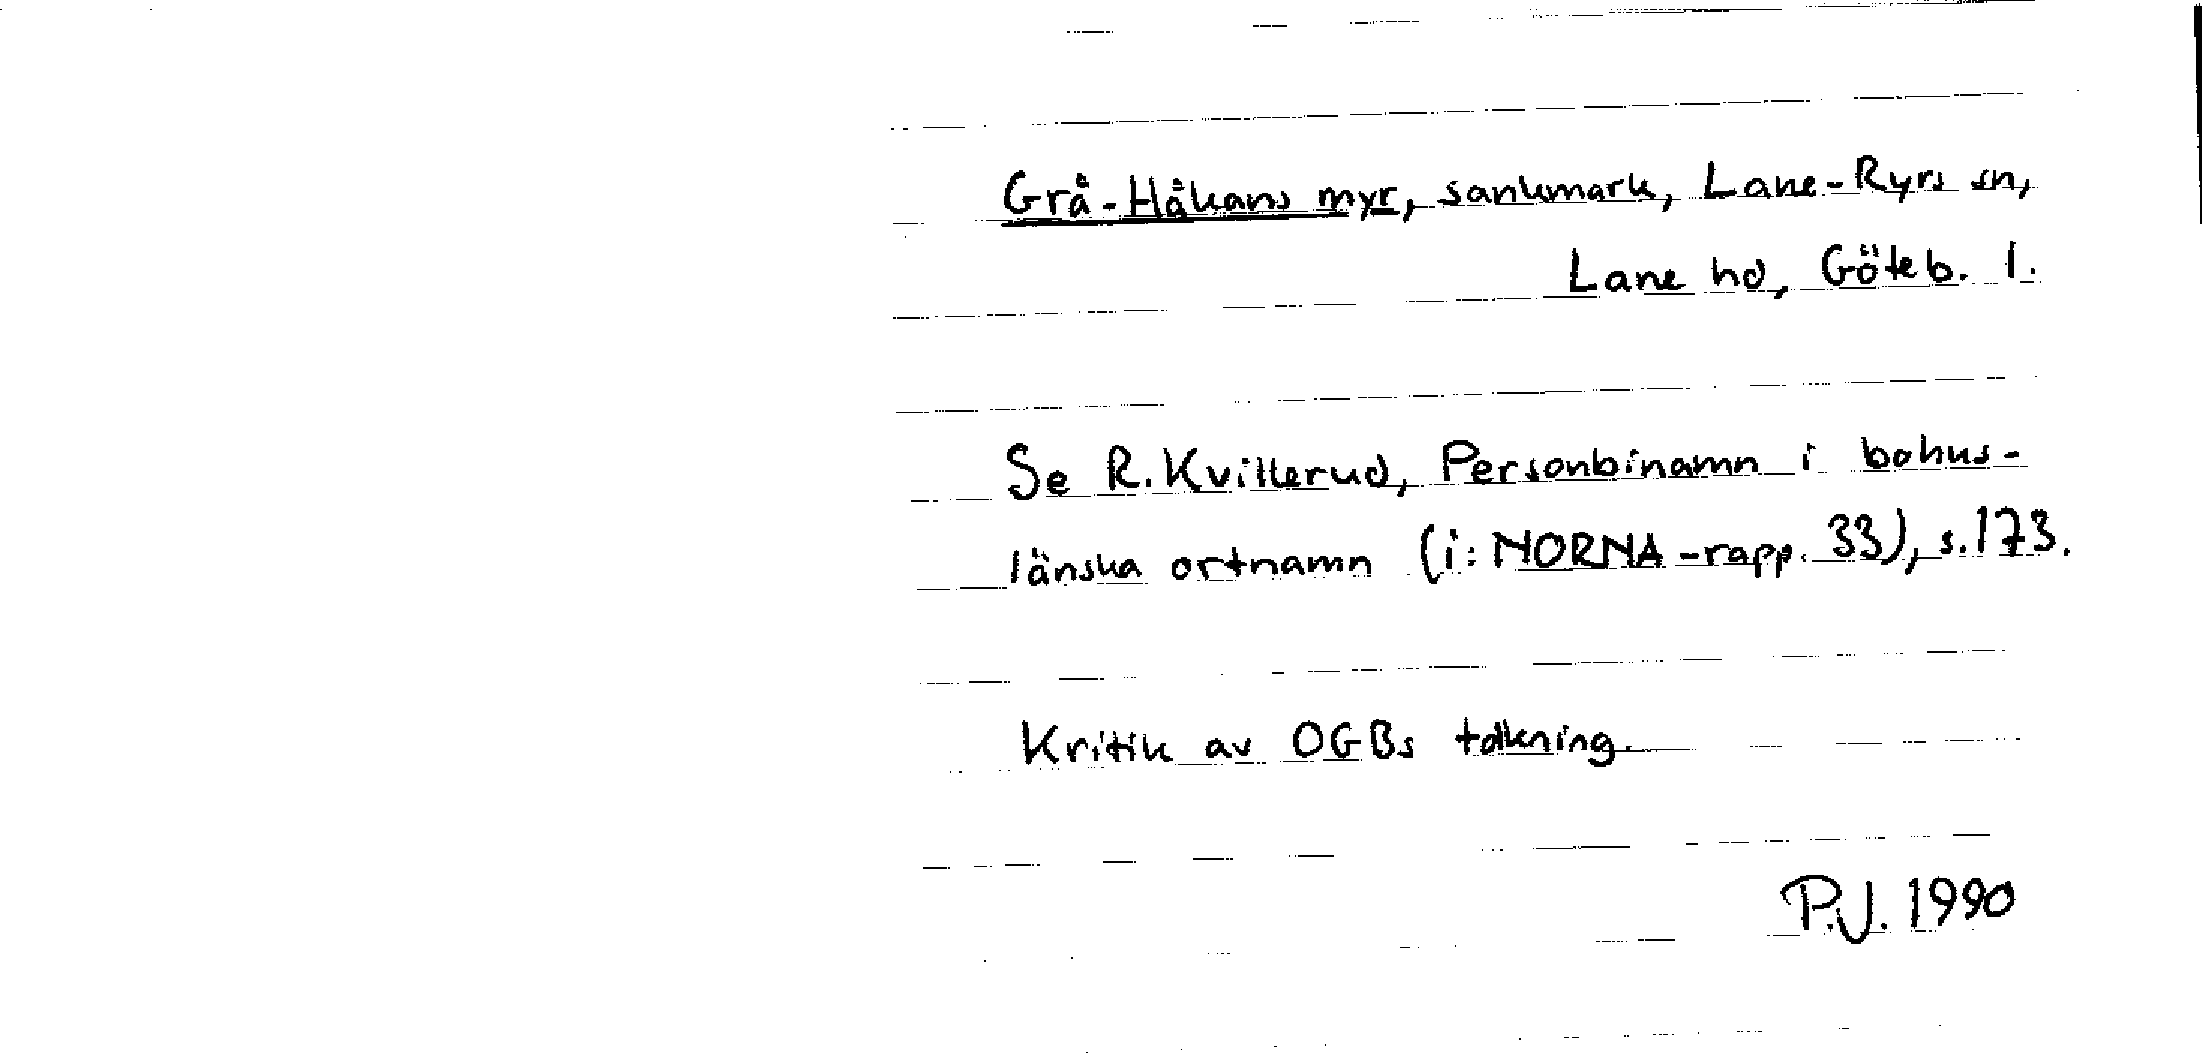 Grå-Håkans myr, sankmark, Lane-Ryrs sn,
Lane hd, Göteb. l.
Se R. Kvillerud, Personbinamn i bohus-
länska ortnamn (i: NORNA-rapp. 33), s. 173.
Kritik av OGBs tolkning.
P.J. 1990